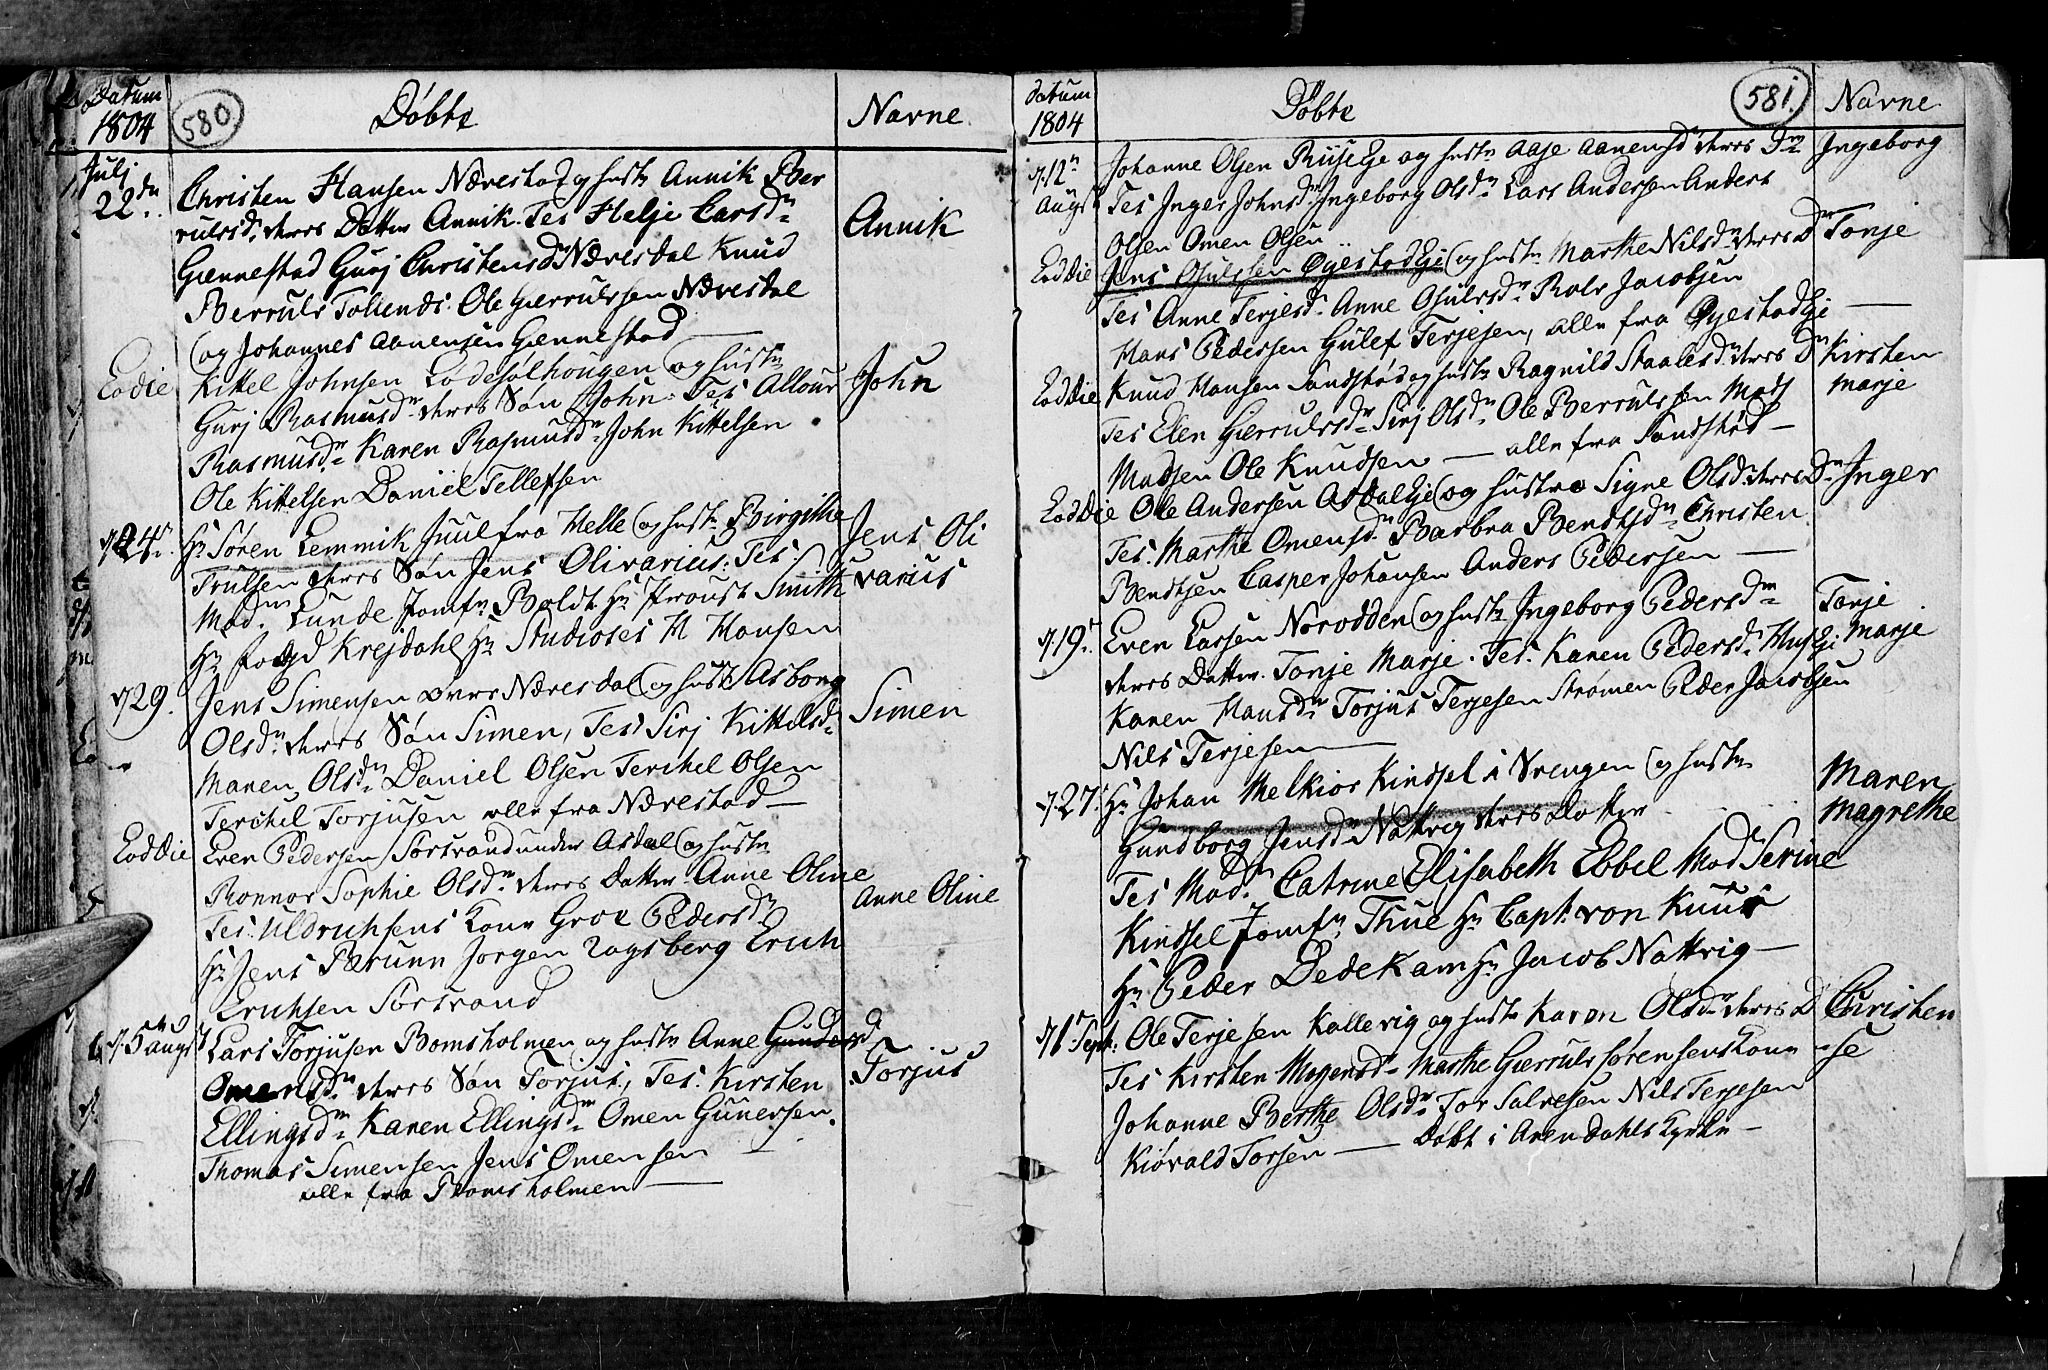 Datum
1804
580
Døbte
Navne
Julj
22dn
Christen Hansen Nærestad og hustr Annik Ber
rulsd. deres Datter Annik. Tes Helje Larsdn
Giennestad Gurj Christensd Næresdal Knud
Berruls Tollends. Ole Gierrulssen Nærestal
og Johannes Aanensen Giennestad —
Annik
Eoddie
Kittel Johnsen Lødesølhougen og hustr
Gurj Rasmusdn deres Søn John. Tes Allour
Rasmusdn Karen Rasmusdn John Kittelsen
Ole Kittelsen Daniel Tellefsen
John
d 24.
Hr Søren Lemmik Juul fra Helle og hustr Birgithe
Trulsen deres Søn Jens Olivarius. Tes
Madm Lunde Jomfr Boldt Hr Proust Smith
Hr Fogd Krejdahl Hr Studioses M Hansen
Jens Oli
varius
d 29.
Jens Simensen øvre Næresdal og hustr Asborg
Olsdn deres Søn Simen, Tes Sirj Kittelsdn
Maren Olsdn Daniel Olsen Terchel Olsen
Terchel Torjusen alle fra Nærestad —
Simen
Eoddie
Even Pedersen Sørtrand under Asdal og hustr
Ronnor Sophie Olsdn deres Datter Anne Oline
Tes. Uldrichsens Kone Groe Pedersdn
Hr Jens Brunn Jørgen Vogsberg Erich
Erichsen Sørtrand
Anne Oline
d. 5 augst
Lars Torjusen Bomsholmen og hustr Anne Gundersd
Omensdn deres Søn Torjus, Tes. Kirsten
Ellingsdn Karen Ellingsdn Omen Gunersen.
Thomas Simensen Jens Omensen
alle fra Bomsholmen —
Torjus
datum
1804
Døbte
581.
Navne
d 12n
Augst
Johanne Olsen RiiseEje og hustr Aase Aanensd deres Dr
Tes Inger Johnsdr Ingeborg Olsdn Lars Andersen Anders
Olsen Omen Olsen
Ingeborg
Eoddie
Jens Osulssen ØyestadEje og hustr Marthe Nilsdn deres Dr
Tes Anne Terjesd. Anne Osulsdn Rolv Jacobsen
Hans Pedersen Gulef Terjesen, alle fra ØyestadEje —
Tonje
Eoddie
Knud Hansen Sandstød og hustr Ragnild Staalesdn deres Dr
Tes Elen Gierrulsdn Sirj Olsdn Ole Berrulssen Mads
Madsen Ole Knudsen — alle fra Sandstød —
Kirsten
Marje
Eoddie
Ole Andersen AsdalEje og hustroe Signe Olsd deres Dr
Tes. Marthe Omensdn Barbra Bendtsdn Christen
Bendtsen Casper Johansen Anders Pedersen —
Inger
d 19.
Even Larsen Norodden og hustr Ingeborg Pedersdn
deres Datter. Tonje Marje. Tes. Karen Pedersdn HusEje
Karen Hansdn Torjus Terjesen Strømen Peder Jacobsen
Nils Terjesen —
Tonje
Marje
d 27.
Hr Johan Melkior Kindsel i Vrengen og hustr
Gundborg Jensdn Nattvig deres Datter
Tes Madm Catrine Elisabeth Ebbel Mad Serine
Kindsel Jomfr Thue Hr Capt. von Kuur
Hr Peder Dedekam Hr Jacob Nattvig —
Maren
Magrethe
d 1 Sept.
Ole Terjesen Kallevig og hustr Karen Olsdn deres D
Tes Kirsten Mogensdn Marthe Gierruls Sørensens Kone
Johanne Berthe Olsdn Tor Salvesen Nils Terjesen
Kiøvald Torsen — Døbt i Arendahls Kyrke —
Christen
-se